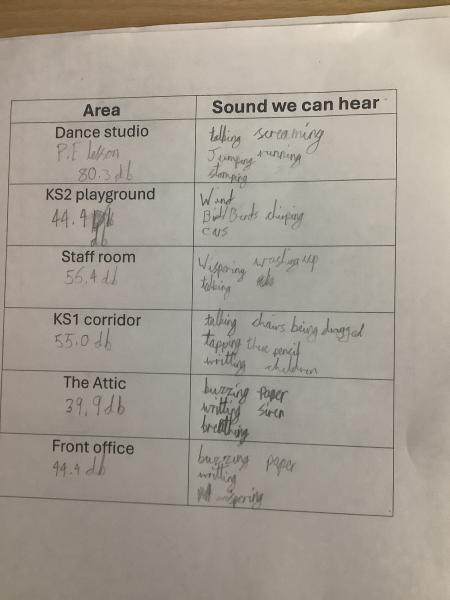 Area
Sound we can hear
Dance studio
P.E lesson
80.3 db
talking screaming
Jumping running
stamping
KS2 playground
44.4
db
Wind
Birds chirping
cars
Staff room
56.4 db
Wispering washing up
talking
KS1 corridor
55.0 db
talking chairs being dragged
tapping there pencil
writting children
The Attic
39.9 db
buzzing paper
writting siren
breathing
Front office
44.4 db
buzzing paper
writting
wispering